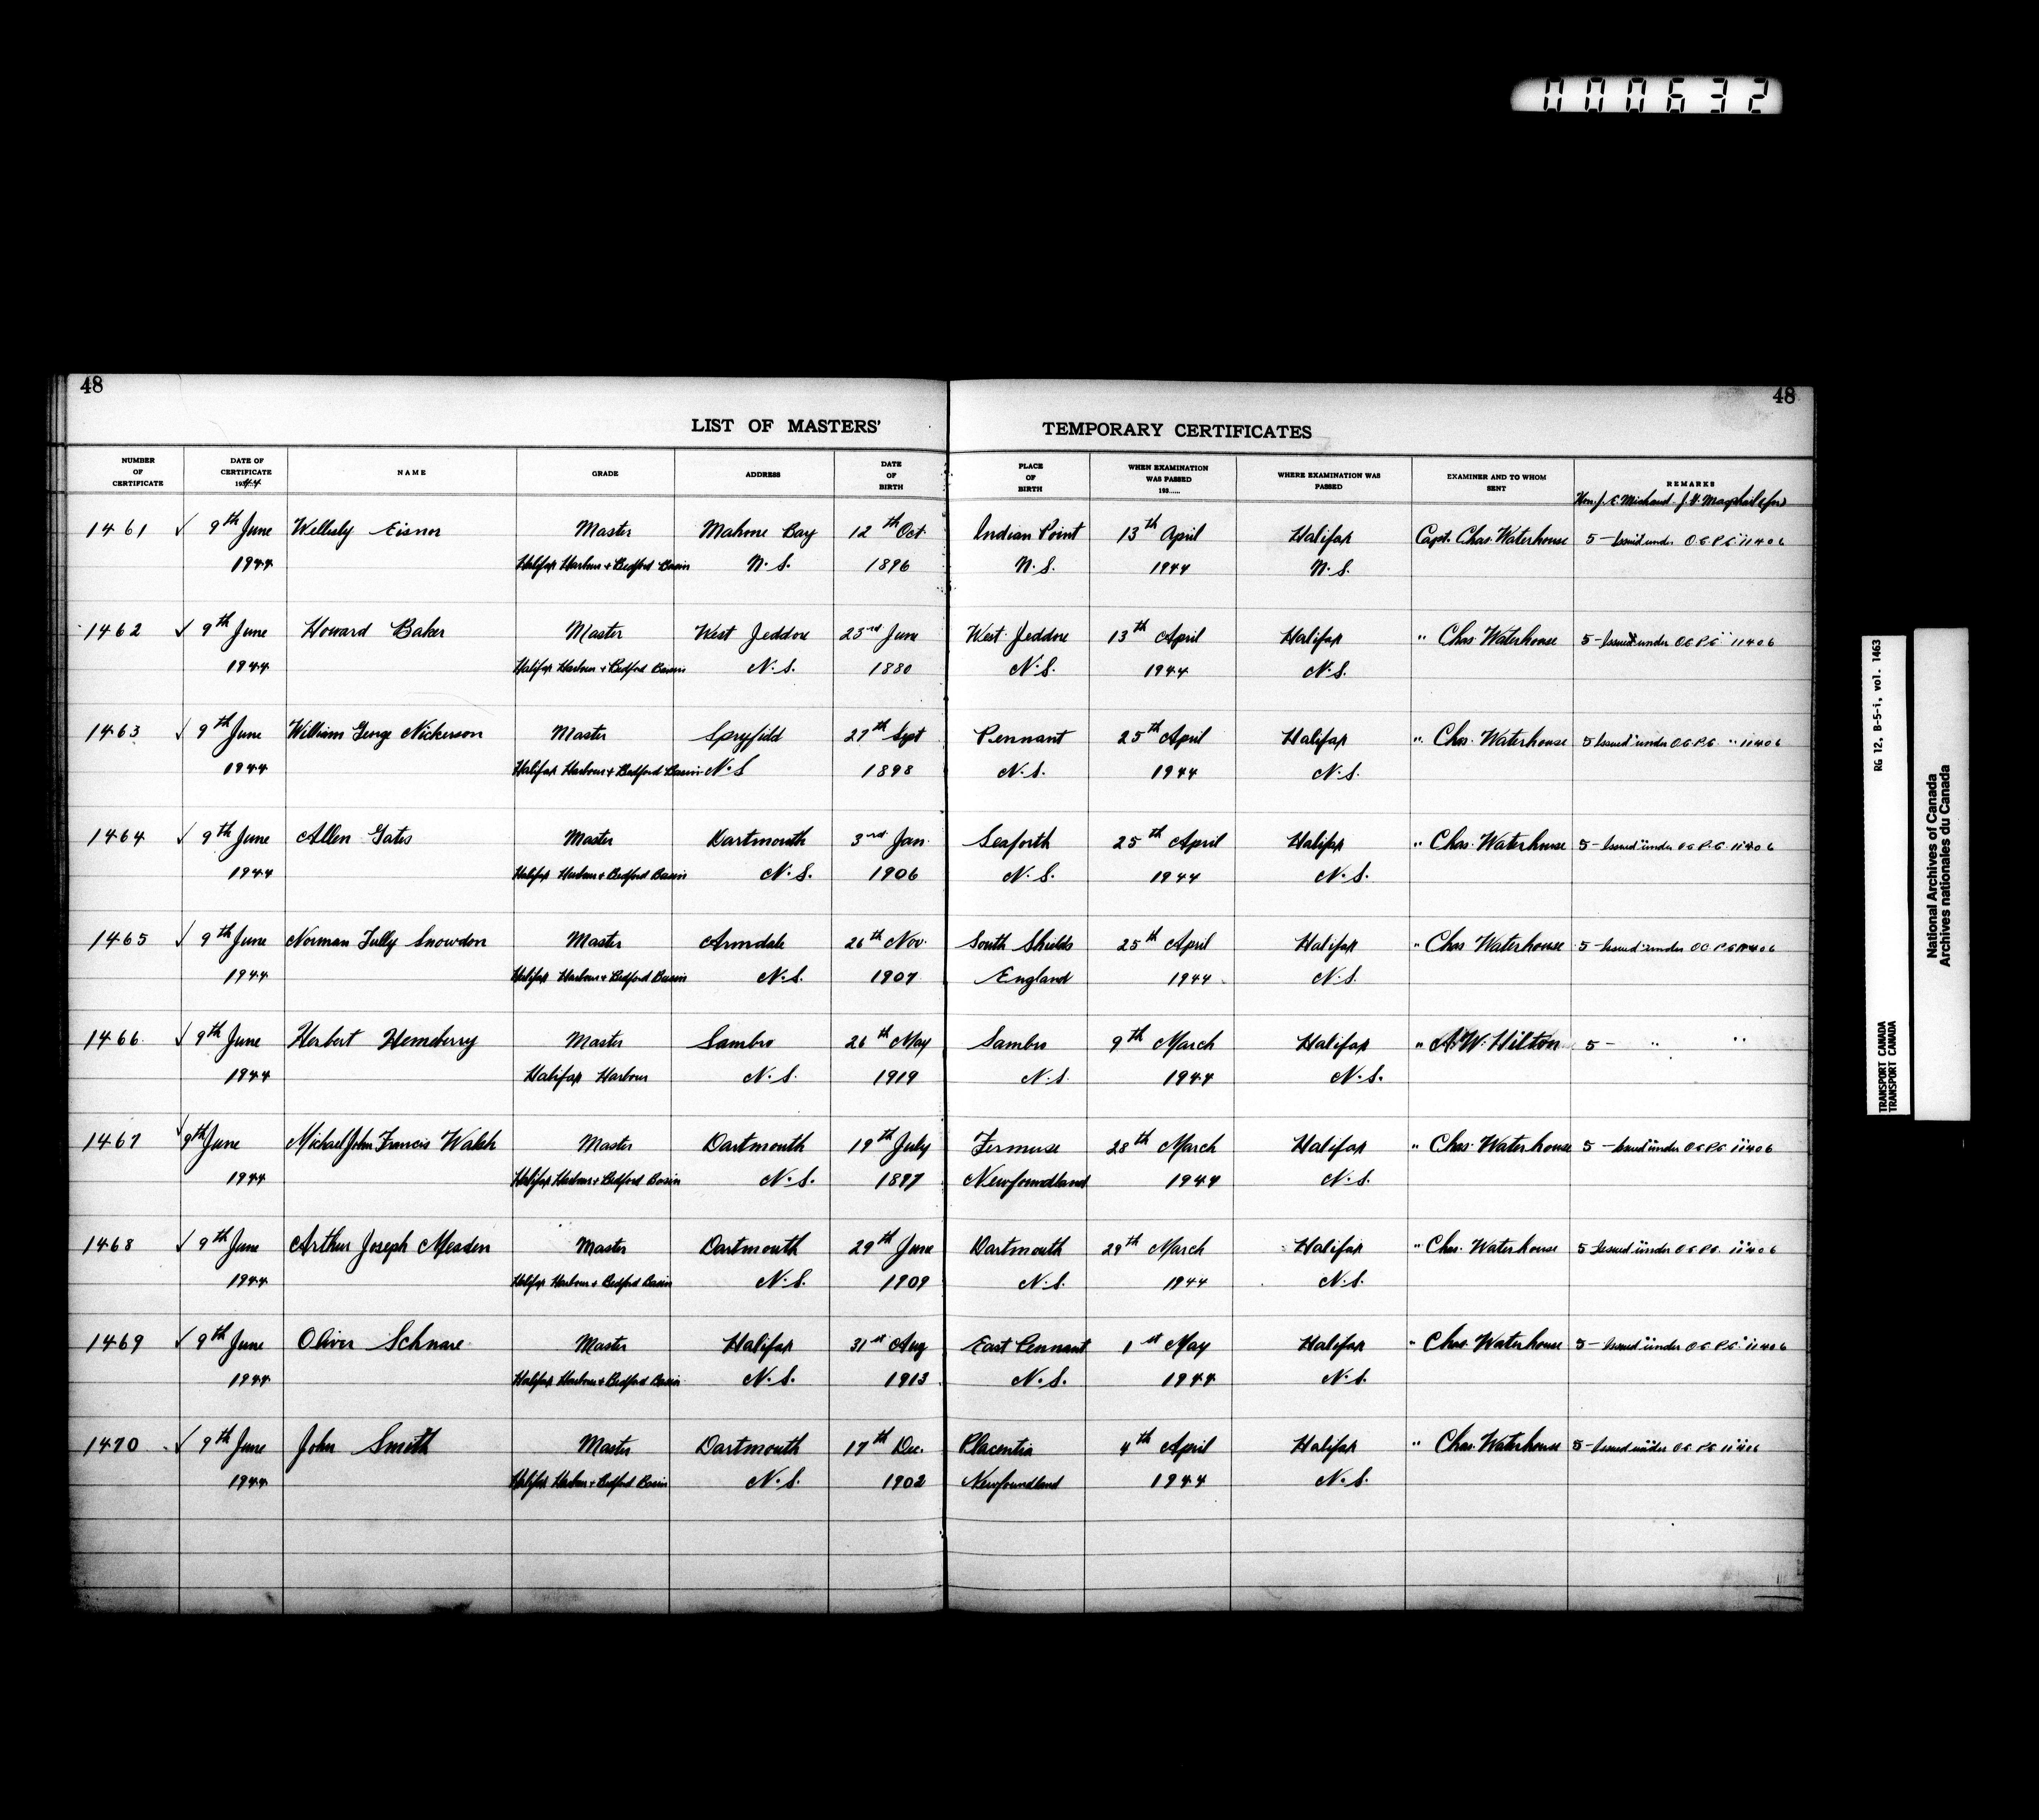 000632
48
48
LIST OF MASTERS' TEMPORARY CERTIFICATES
NUMBER OF CERTIFICATE DATE OF CERTIFICATE 1944 NAME GRADE ADDRESS DATE OF BIRTH PLACE OF BIRTH WHEN EXAMINATION WAS PASSED 193...... WHERE EXAMINATION WAS PASSED EXAMINER AND TO WHOM SENT REMARKS
Hon. J. E. Michaud J. H. Macphail (for)
1461 ✓ 9th June Wellesly Eisnor Master Mahone Bay 12th Oct. Indian Point 13th April Halifax Capt. Chas. Waterhouse 5 - Issued under O.C. P.C. 11406
1944 Halifax Harbour + Bedford Basin N.S. 1896 N.S. 1944 N.S.
1462 ✓ 9th June Howard Baker Master West Jeddore 23rd June West Jeddore 13th April Halifax " Chas. Waterhouse 5 - Issued under O.C. P.C. " 11406
1944 Halifax Harbour + Bedford Basin N.S. 1880 N.S. 1944 N.S.
1463 ✓ 9th June William George Nickerson Master Spryfield 27th Sept Pennant 25th April Halifax " Chas. Waterhouse 5 Issued under O.C. P.C. " 11406
1944 Halifax Harbour + Bedford Basin N.S 1898 N.S. 1944 N.S.
1464 ✓ 9th June Allen Gates Master Dartmouth 3rd Jan. Seaforth 25th April Halifax " Chas. Waterhouse 5 - Issued under O.C. P.C. 11406
1944 Halifax Harbour + Bedford Basin N.S. 1906 N.S. 1944 N.S.
1465 ✓ 9th June Norman Tully Snowdon Master Armdale 26th Nov. South Shields 25th April Halifax " Chas Waterhouse 5 - Issued under O.C. P.C. 11406
1944 Halifax Harbour + Bedford Basin N.S. 1907 England 1944 N.S.
1466 ✓ 9th June Herbert Henneberry Master Sambro 26th May Sambro 9th March Halifax " A. W. Hilton 5 - " "
1944 Halifax Harbour N.S. 1919 N.S. 1944 N.S.
1467 ✓ 9th June Michael John Francis Walsh Master Dartmouth 19th July Fermuse 28th March Halifax " Chas. Waterhouse 5 - Issued under O.C. P.C. 11406
1944 Halifax Harbour + Bedford Basin N.S. 1897 Newfoundland 1944 N.S.
1468 ✓ 9th June Arthur Joseph Meaden Master Dartmouth 29th June Dartmouth 29th March Halifax " Chas. Waterhouse 5 Issued under O.C. P.C. 11406
1944 Halifax Harbour + Bedford Basin N.S. 1909 N.S. 1944 N.S.
1469 ✓ 9th June Oliver Schnare Master Halifax 31st Aug East Pennant 1st May Halifax " Chas. Waterhouse 5 - Issued under O.C. P.C. 11406
1944 Halifax Harbour + Bedford Basin N.S. 1913 N.S. 1944 N.S.
1470 ✓ 9th June John Smith Master Dartmouth 17th Dec. Placentia 4th April Halifax " Chas. Waterhouse 5 - Issued under O.C. P.C.
1944 Halifax Harbour + Bedford Basin N.S. 1902 Newfoundland 1944 N.S.
RG 12, B-5-i, vol. 1463
TRANSPORT CANADA
TRANSPORT CANADA
National Archives of Canada
Archives nationales du Canada